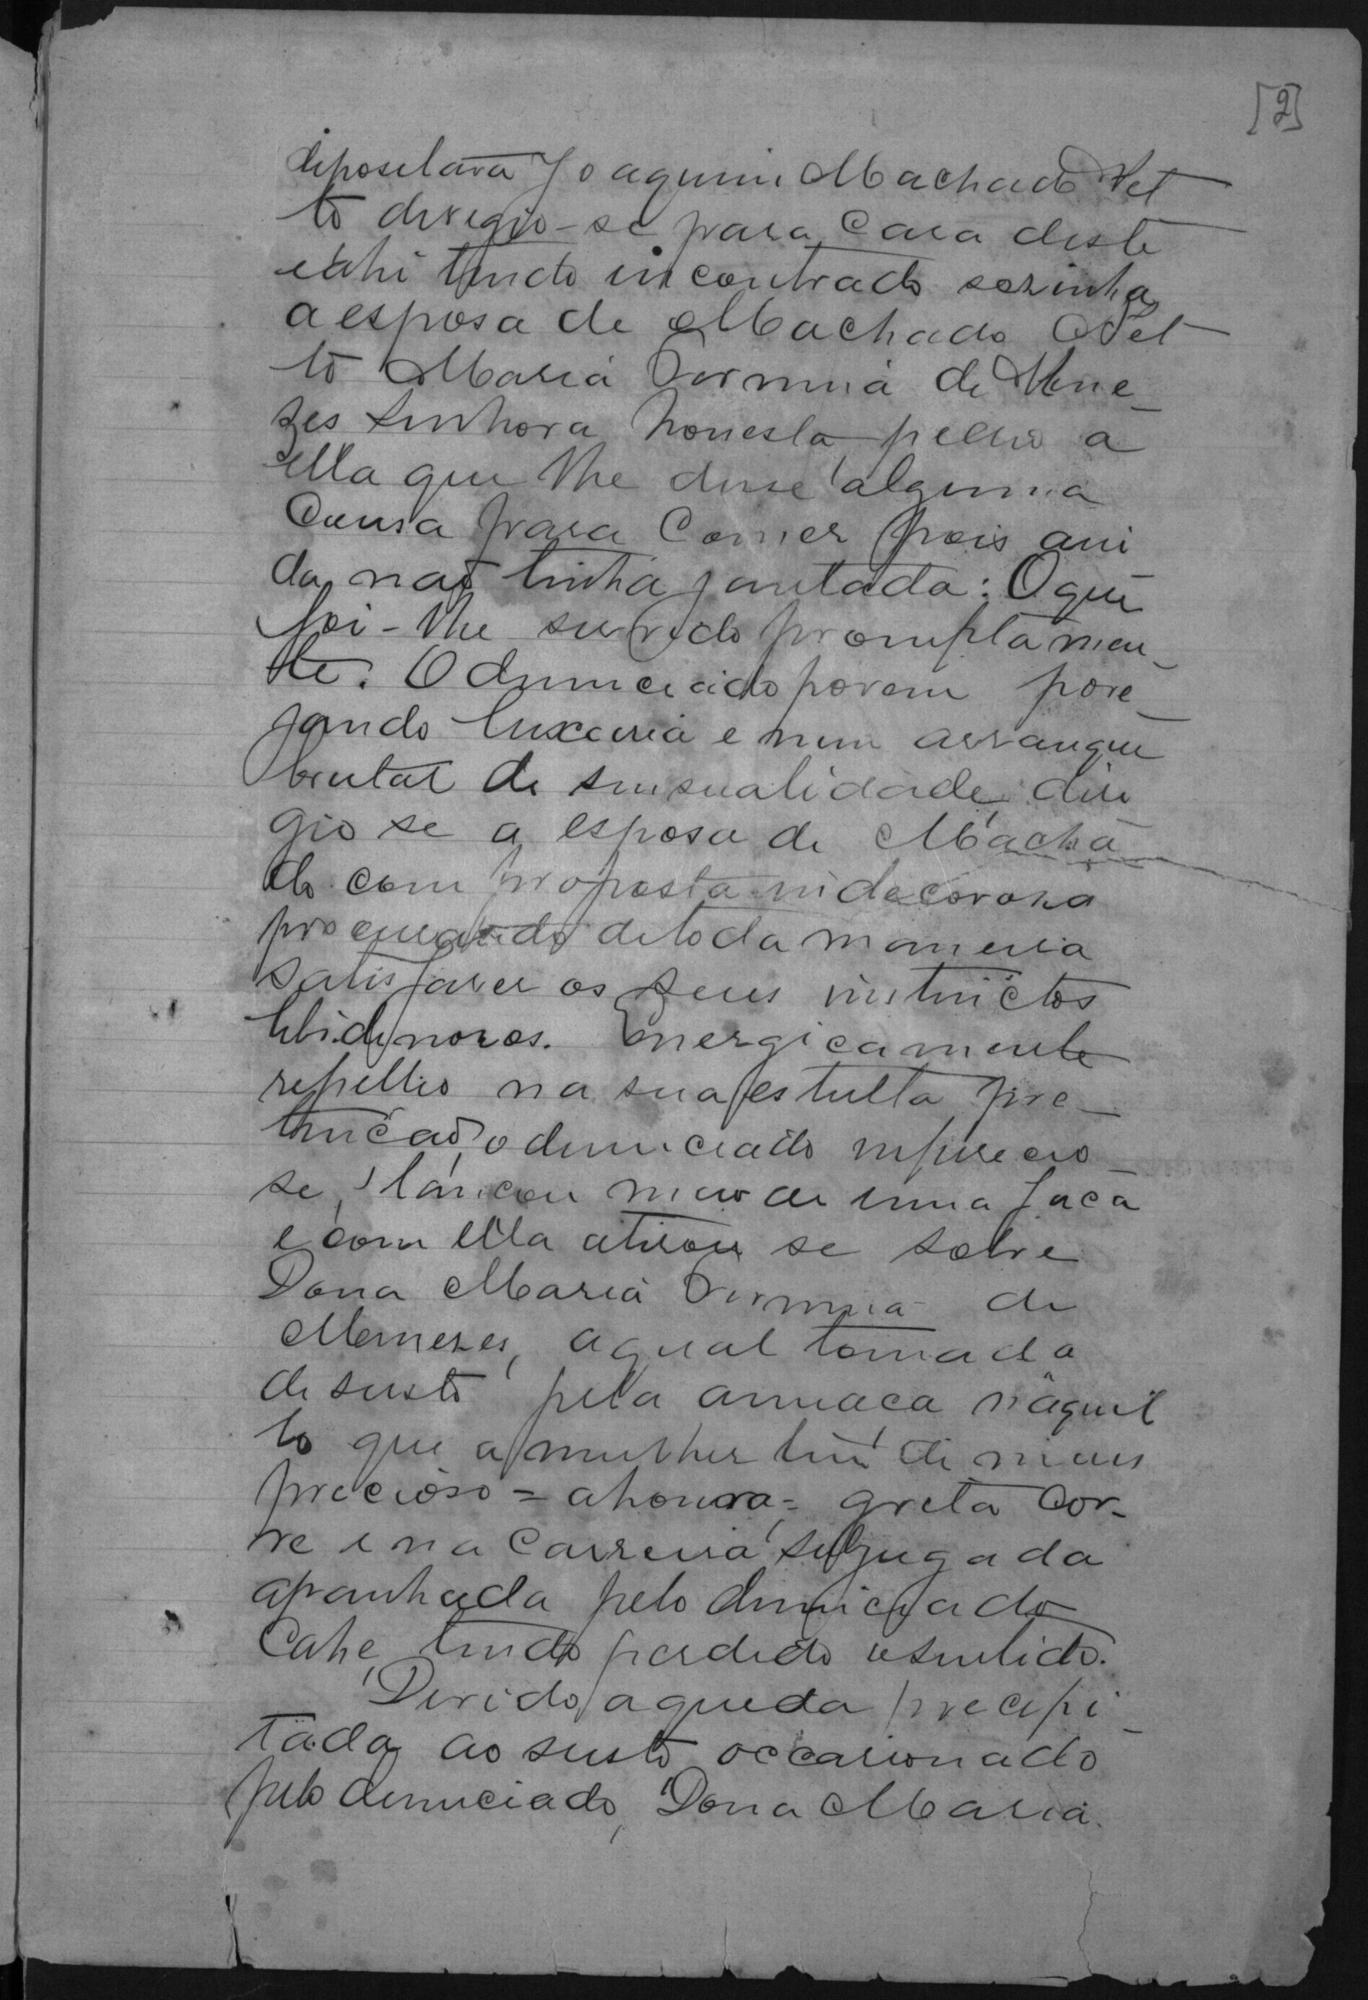 [2]
depositava Joaquim Machado Net
to diregio-se para casa deste
e ahi tendo incontrado sosinha
a esposa de Machado Net
to Maria Firmina de Mene-
zes senhora honesta pedio a
ella que lhe dusse alguma
cousa para comer pois ain
da, não tinha jantada: O que
foi-lhe servido promptamen-
te. O denunciado porem pore-
jando luxuria e num arranque
brutal de sensualidade, diri
gio se a esposa de Macha
do com proposta indecorosa
procurando de toda maneira
satisfaser os seus instinctos
libidinosos. Energicamente
repellio na sua estulta pre-
tencão, o denunciado infurecio-
se, lancou mão de uma faca
e com ella atirou se sobre
Dona Maria Firmina de
Menezes, a qual tomada
de susto pela ameaca naquil
lo que a mulher tem de mais
precioso = a honra = grita cor-
re e na carreira subjugada
apanhada pelo denunciado
cahe, tendo perdido o sentido.
Devido a queda precipi-
tada ao susto occasionado
pelo denunciado, Dona Maria